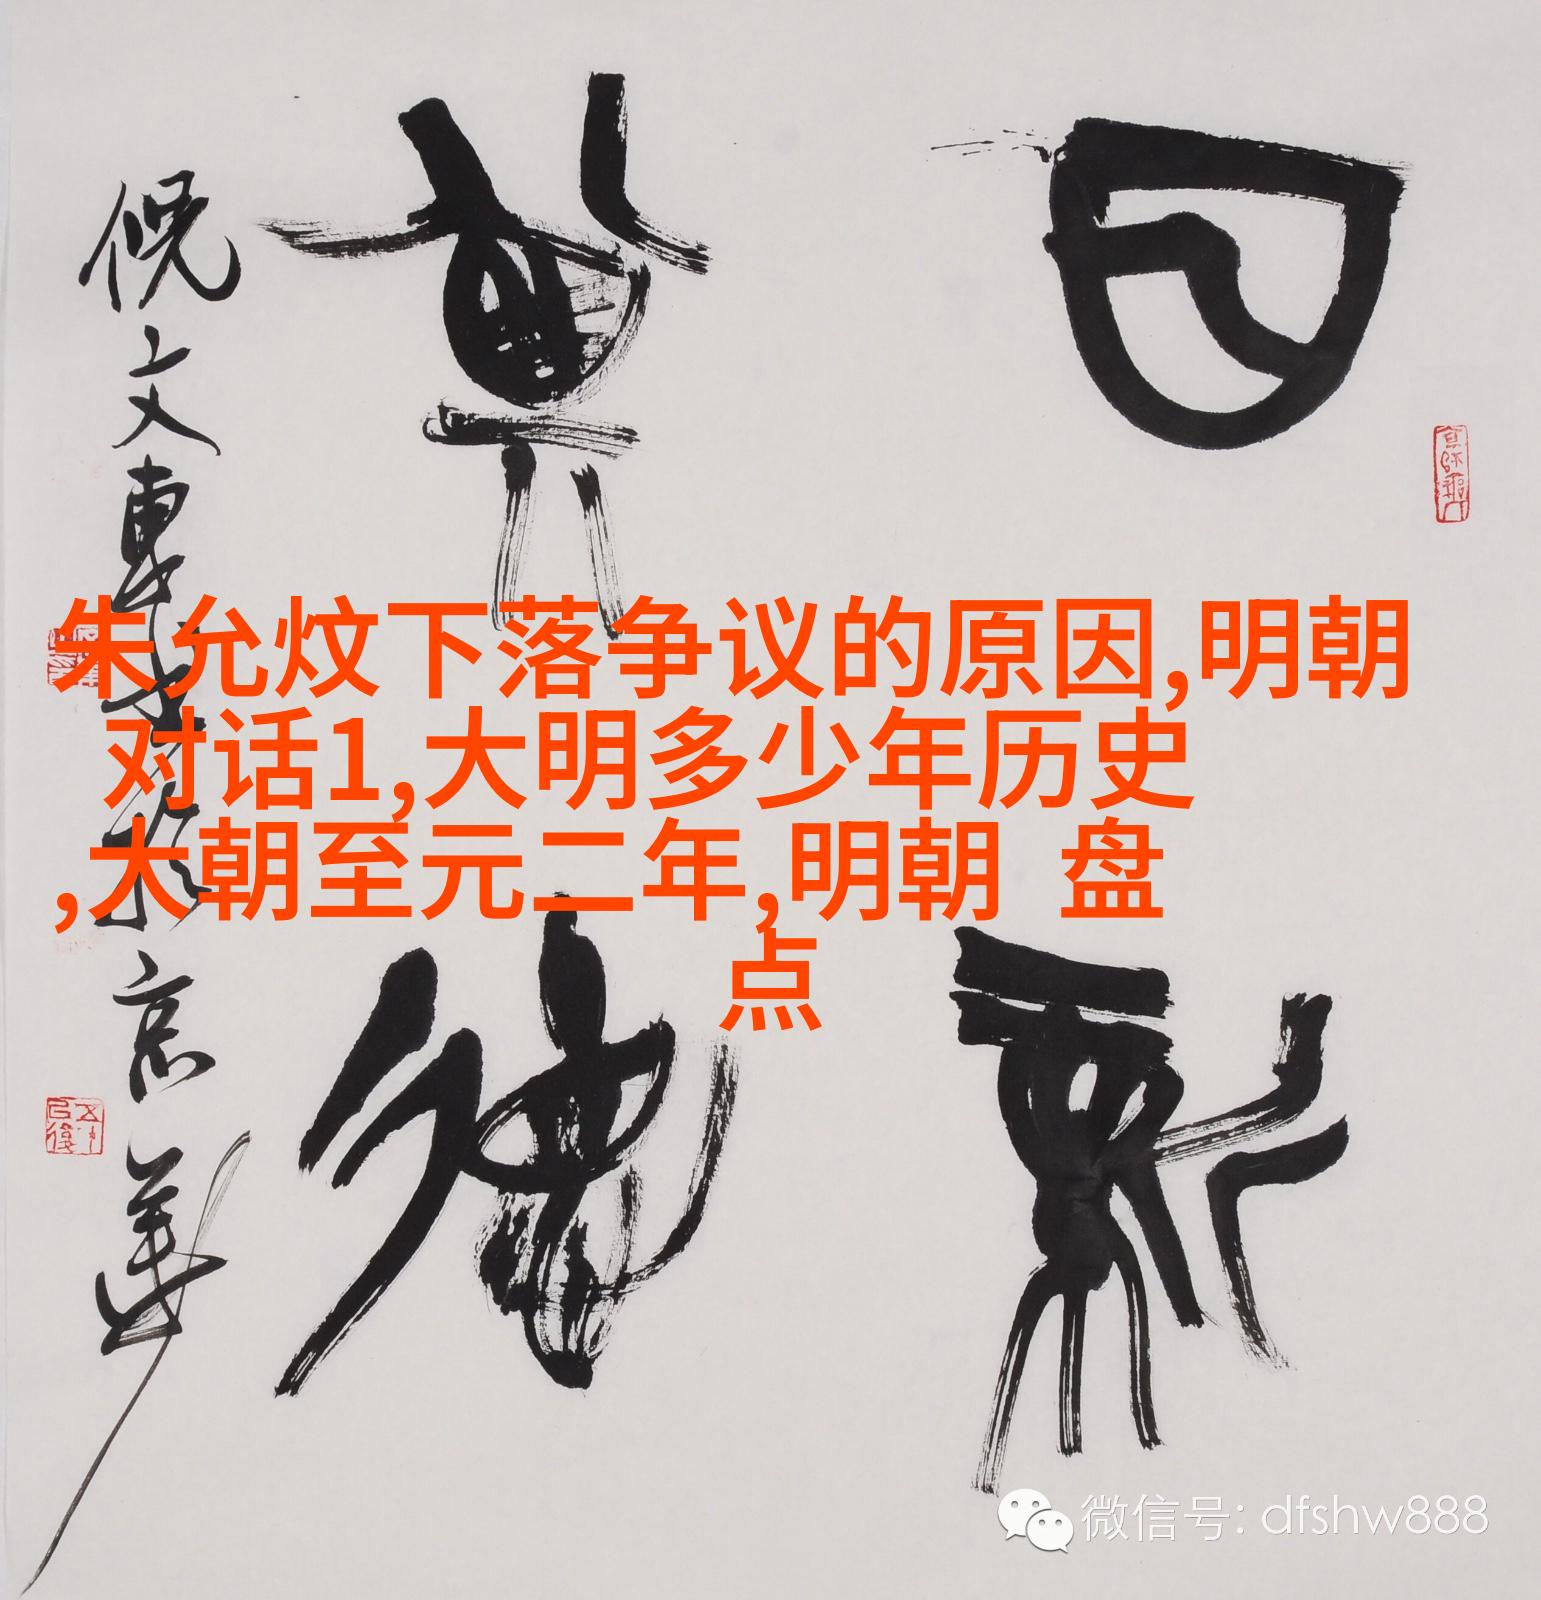 朱允炆下落争议的原因,明朝
对话1,大明多少年历史
,大朝至元二年,明朝  盘
点
日新其德
倪文東书於京華
微信号: dfshw888